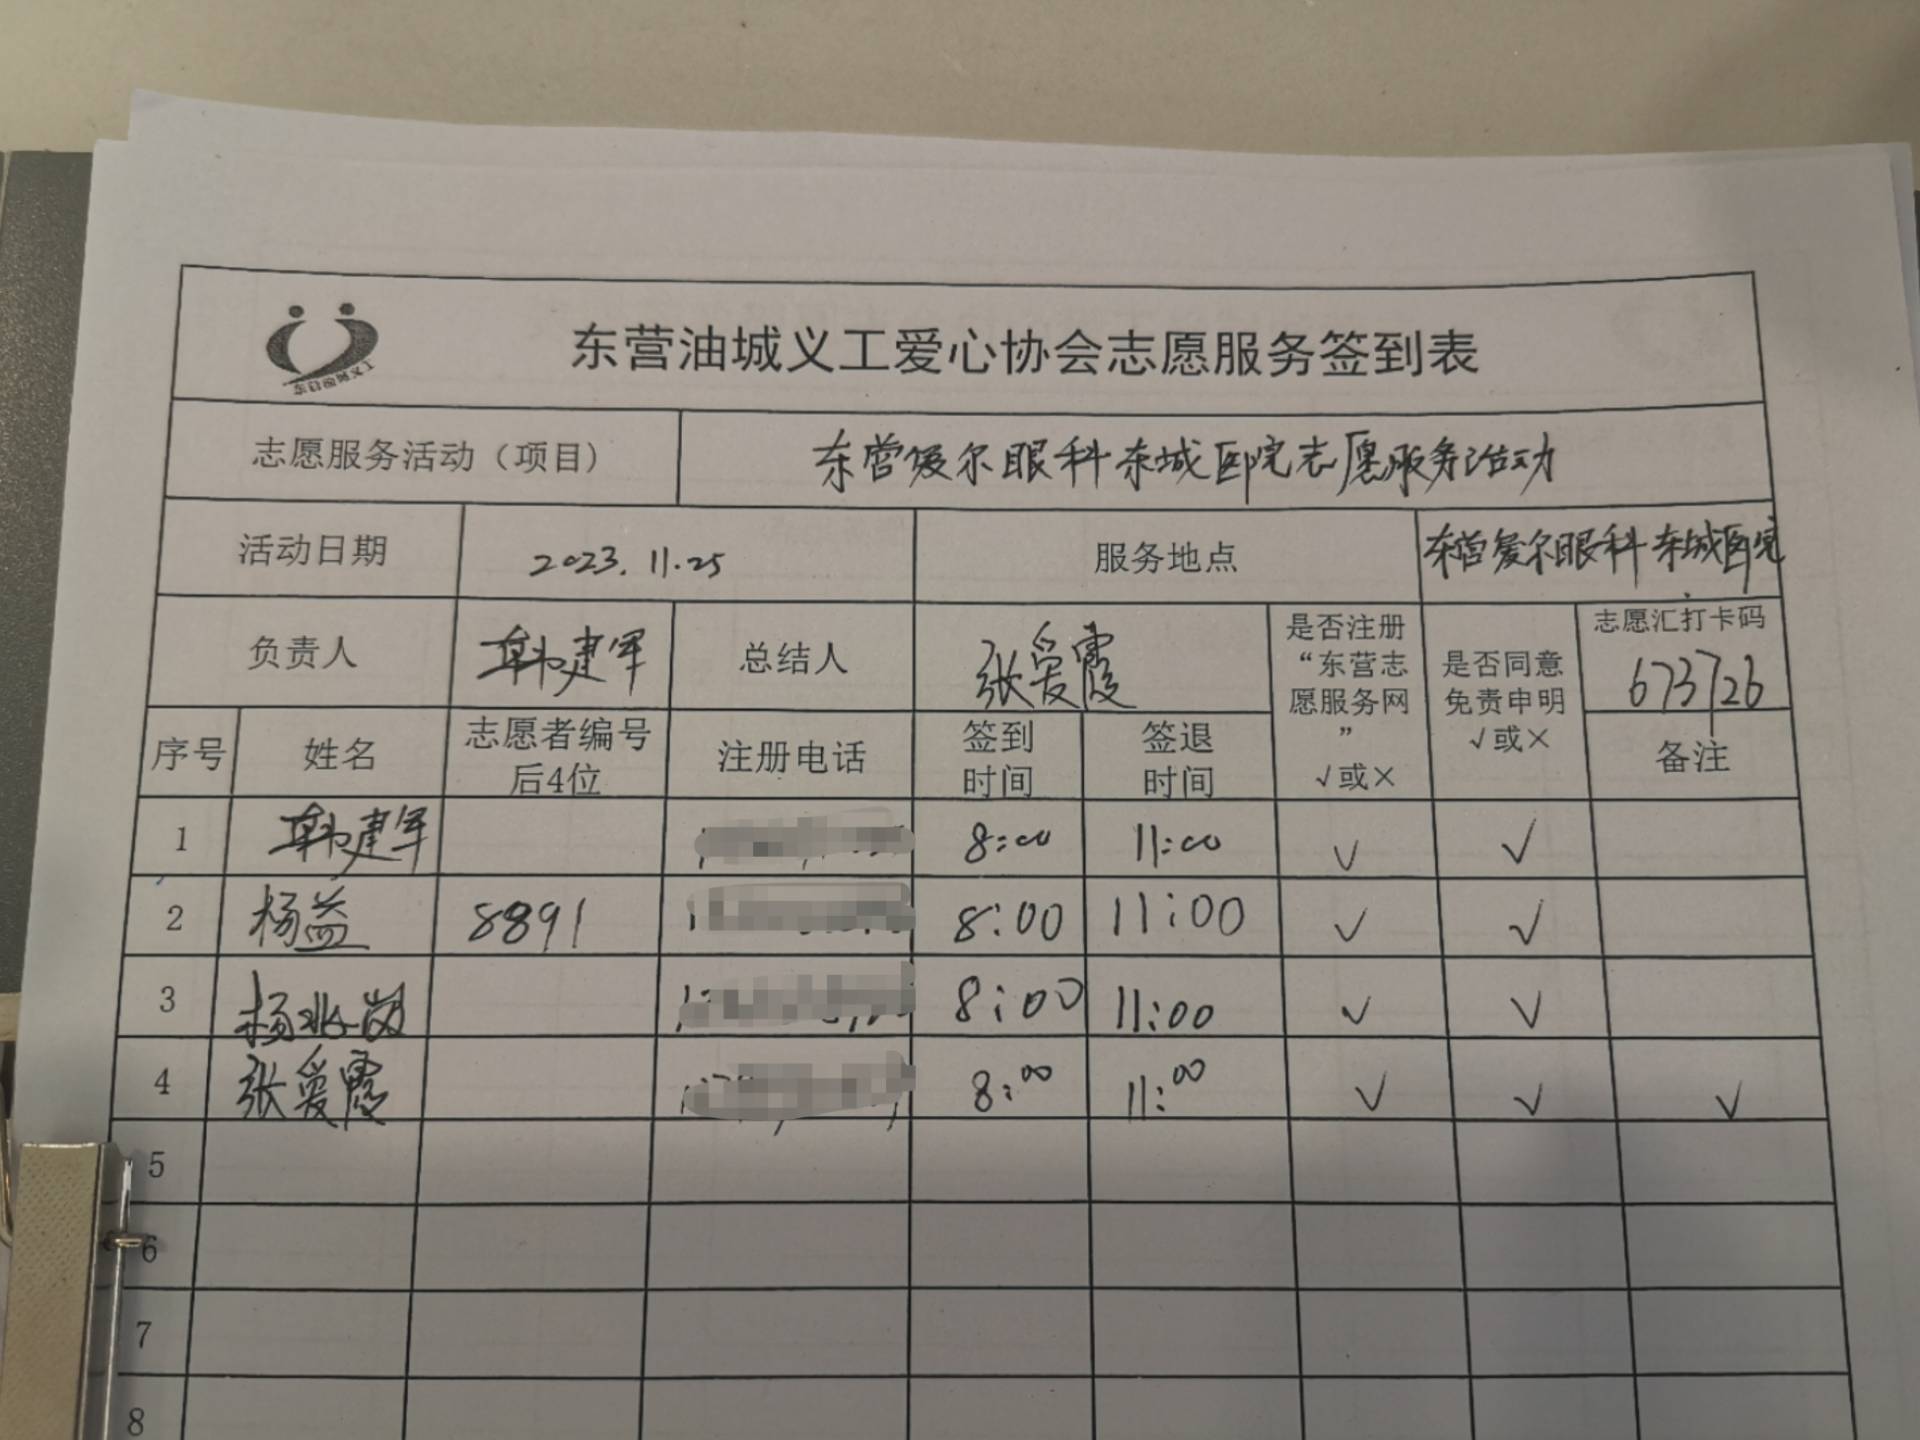 东营油城义工爱心协会志愿服务签到表
东营油城义工
志愿服务活动（项目） 东营爱尔眼科东城医院志愿服务活动
活动日期 2023.11.25 服务地点 东营爱尔眼科东城医院
负责人 韩建军 总结人 张爱霞 是否注册“东营志愿服务网” √或× 是否同意免责申明 √或× 志愿汇打卡码 673726
序号 姓名 志愿者编号后4位 注册电话 签到时间 签退时间 备注
1 韩建军 8:00 11:00 √ √
2 杨益 8891 8:00 11:00 √ √
3 杨兆岗 8:00 11:00 √ √
4 张爱霞 8:00 11:00 √ √ √
5
6
7
8